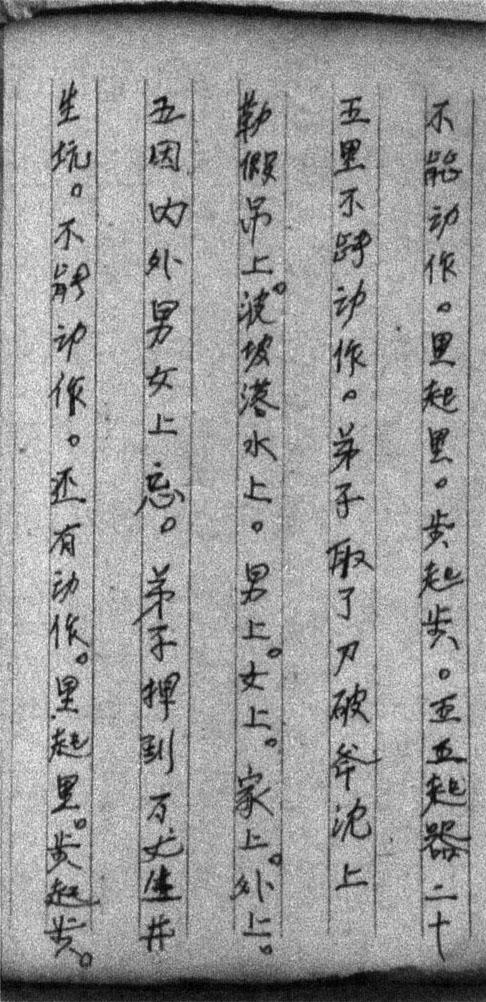 不能动作。里起里。步起步。五五起器二十
五里不能动作。弟子取了刀破斧沈上
勒假吊上。波坡港水上。男上。女上。家上。外上。
五因内外男女上忘。弟子押到万丈生井
生坑。不能动作。还有动作。里起里。步起步。